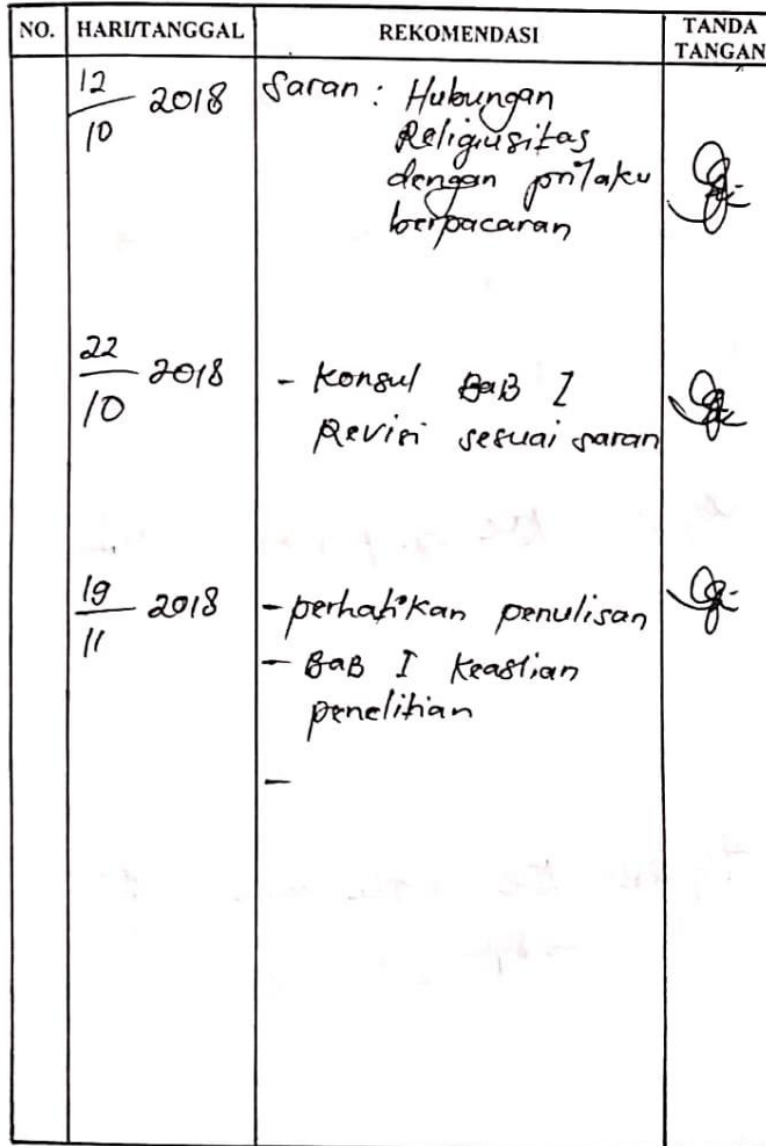 NO. HARI/TANGGAL REKOMENDASI TANDA TANGAN
12/10 2018 Saran : Hubungan
Religiusitas
dengan prilaku
berpacaran
22/10 2018 - Konsul BaB I
Revisi sesuai saran
19/11 2018 - perhatikan penulisan
- BaB I Keaslian
penelitian
-